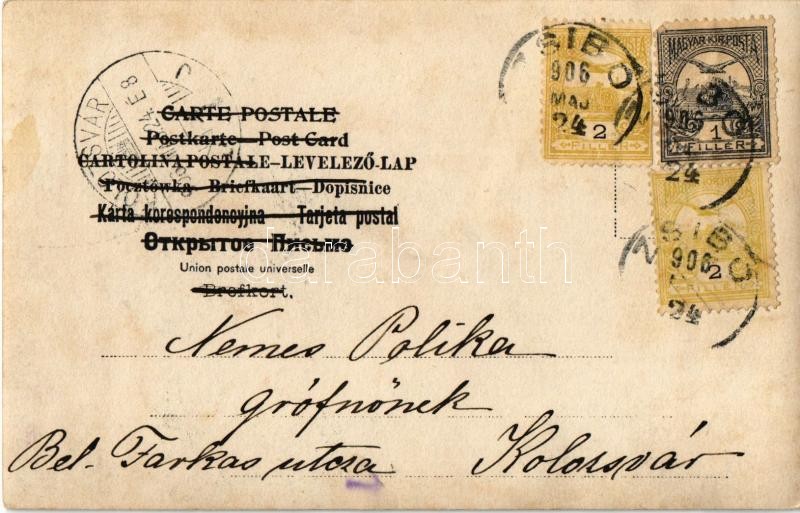 CARTE POSTALE
Postkarte - Post Card
CARTOLINA POSTALE - LEVELEZŐ-LAP
Pocztówka - Briefkaart - Dopisnice
Kárta korespondencyjna - Tarjeta postal
Открытое Письмо
Union postale universelle
Brefkort.
Nemes Polika
grófnőnek
Bel-Farkas utcza Kolozsvár
KOLOZSVÁR
ZSIBO
906
MÁJ
24
2
FILLER
MAGYAR KIR. POSTA
906
24
1
FILLER
ZSIBO
906
24
2
FILLER
darabanth